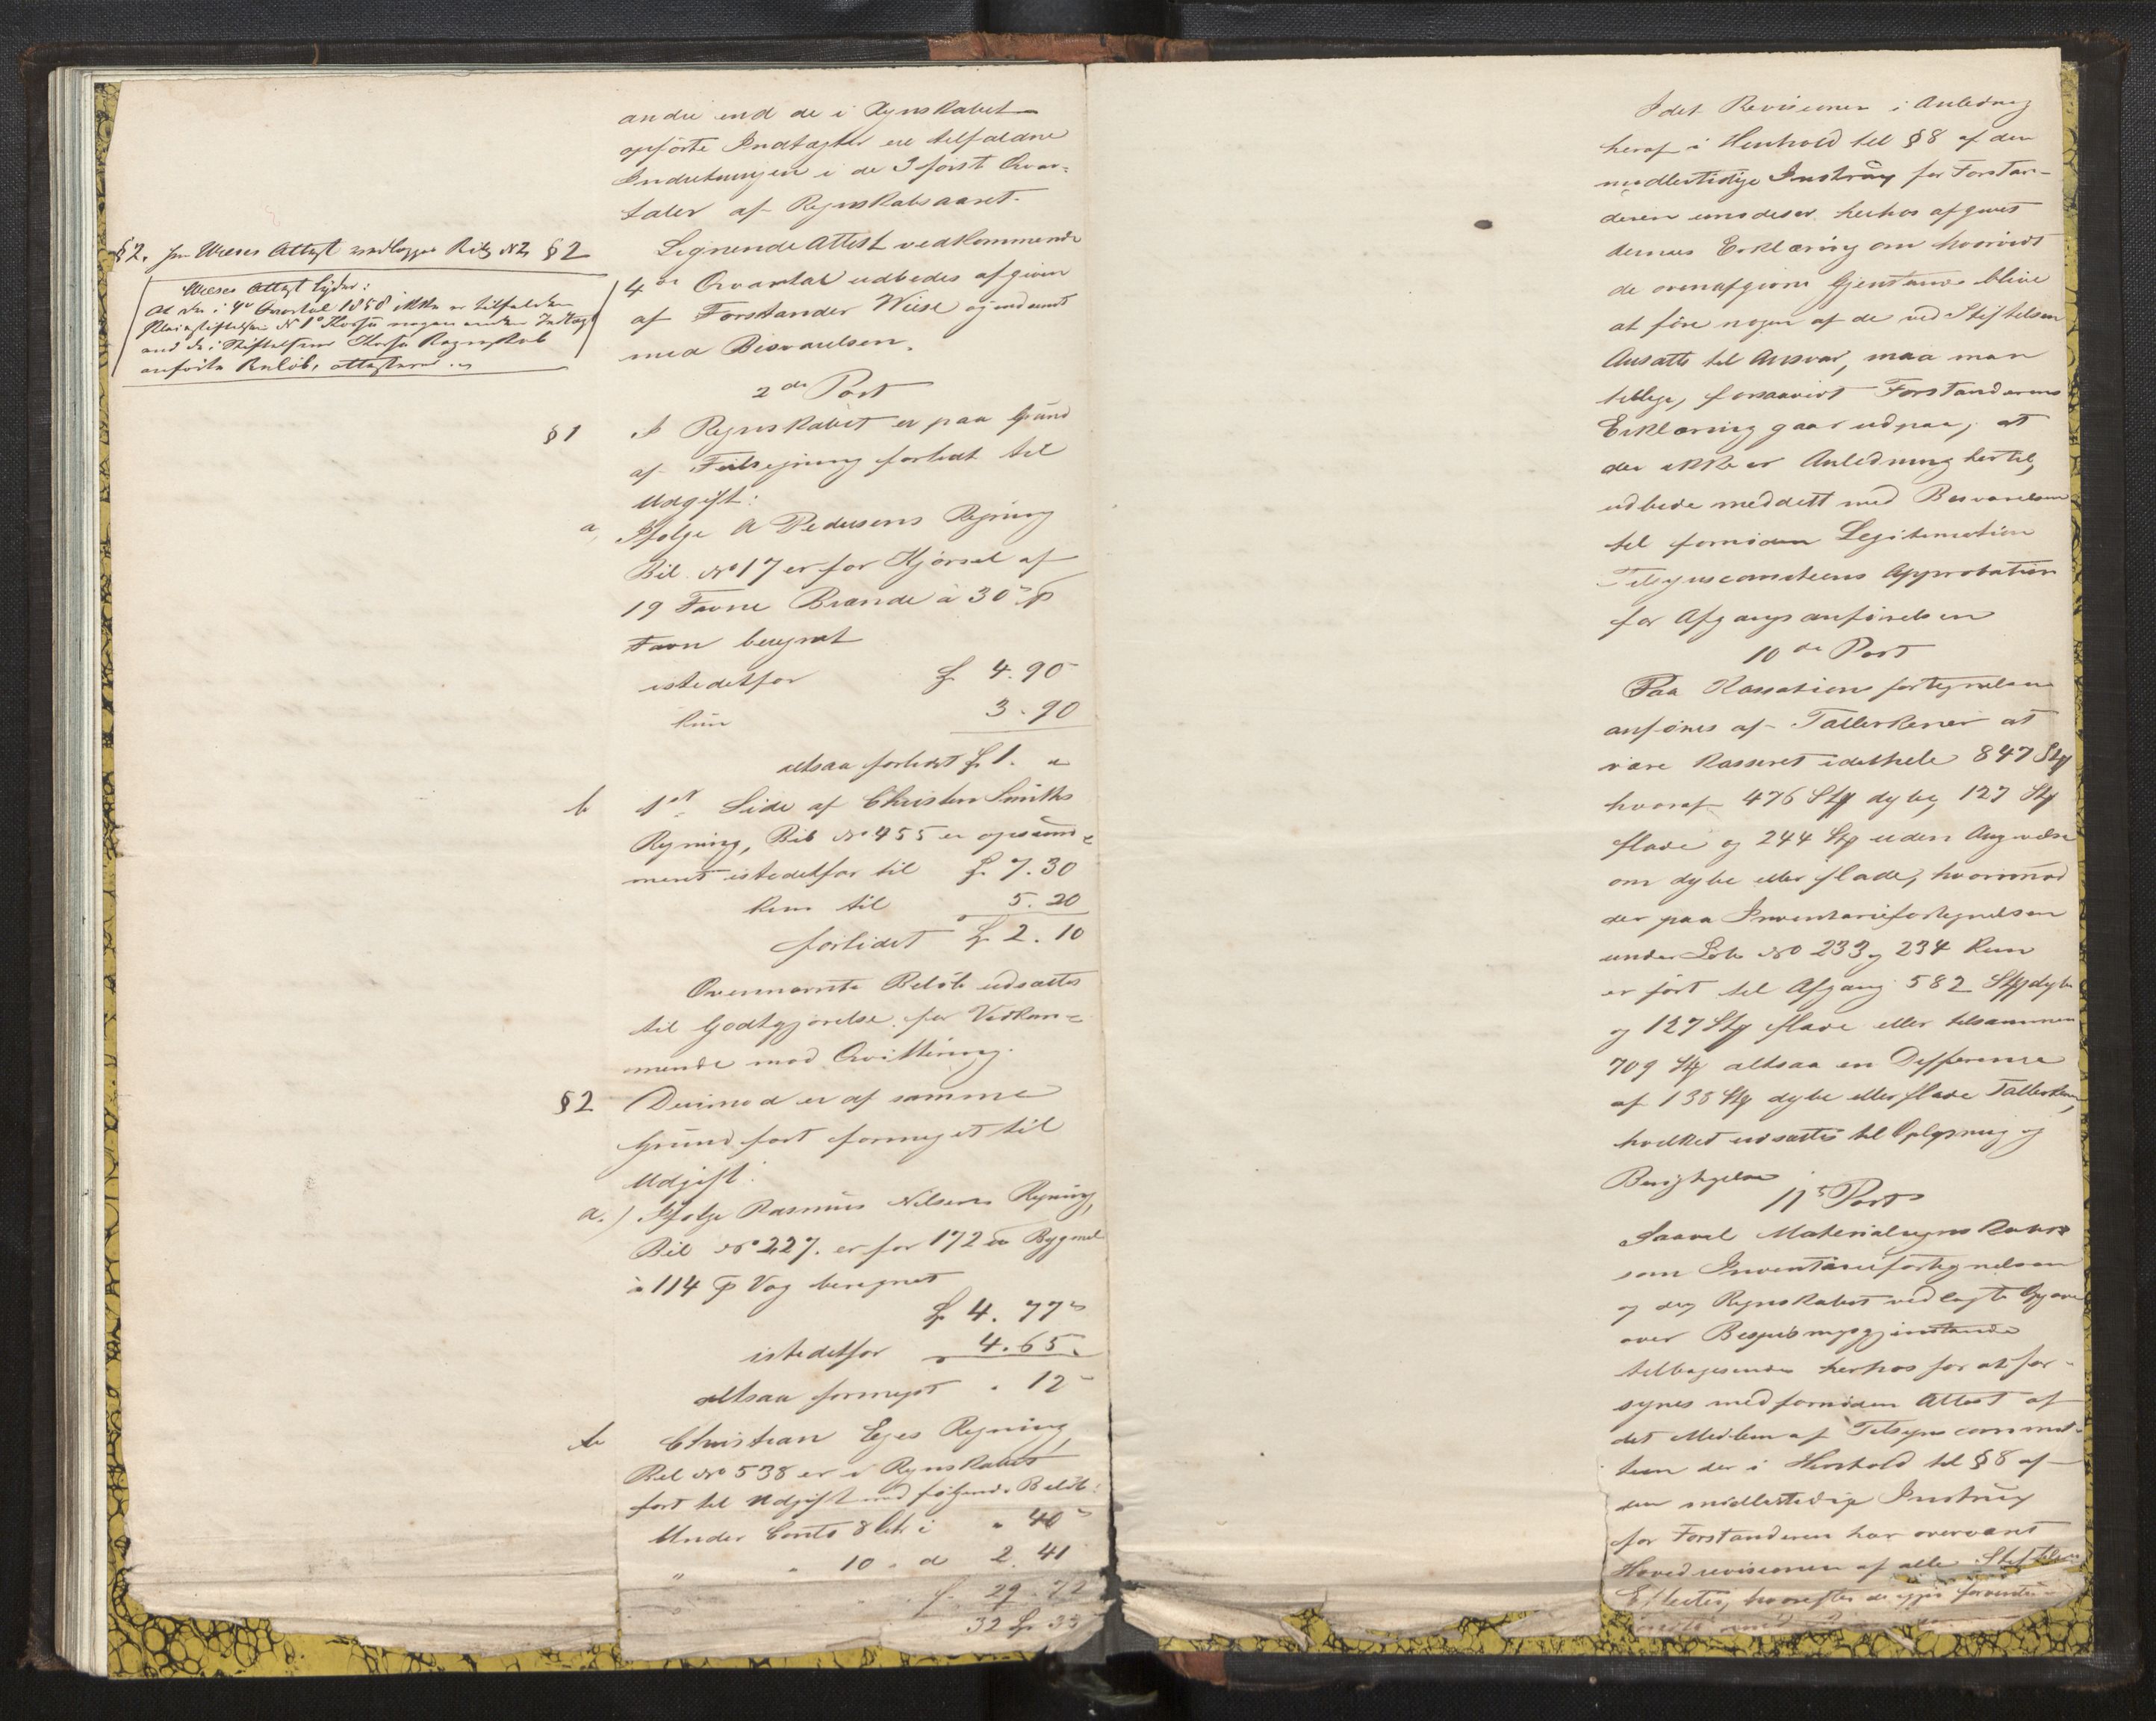 andre end de i Regnskabet
opførte Indtægter ere tilfaldne
Indretningen i de 3 først Qvar-
taler af Regnskabsaaret.
§2. Hr Wieses Attest vedlægges Bilg № 2 §2
Wieses Attest lyder:
At der i 4de Qvartal 1858 ikke er tilfalden
Pleiestiftelsen № 1 nogen anden Indtægt
end de i Stiftelsens Regnskab
anførte Beløb, attesteres.
Lignende Attest vedkommende
4de Qvartal udbedes afgiven
af Forstander Wiese og indsendt
med Besvarelsen.
2den Post
§1 I Regnskabet er paa Grund
af Feilregning forlidt til
Udgift:
a, Ifølge A Pedersens Regning
Bil. № 17 er for Kjørsel af
19 Favne Brænde a 30 s p
Favn beregnet
istedetfor 4. 90
kun 3. 90
altsaa forlidet 1. "
b 1ste Side af Christen Smiths
Regning, Bil № 455 er opsum-
meret istedetfor til 7. 30
kun til 5. 20
forlidet 2. 10
Ovennævnte Beløb udsættes
til Godtgjørelse for Vedkom-
mende mod Qvittering.
§2 Derimod er af samme
Grund ført formeget til
Udgift:
a.) Ifølge Rasmus Nilsens Regning,
Bil № 227. er for 172 Bygmel
à 114 p Vog beregnet
4. 77
istedetfor 4. 65.
altsaa formeget " 12
b Christian Eges Regning
Bil № 538 er i Regnskabet
ført til Udgift med følgende Beløb:
Under Conto 8 Litr i " 40
" " 10 " d 2. 41
" f. 29. 72
32 33
Idet Revisionen i Anledning
heraf i Henhold til §8 af den
midlertidige Instrux for Forstan-
deren herhos afgivet
dennes Erklæring om hvorvidt
de ovenafgivne Gjenstande blive
at føre nogen af de ved Stiftelsen
Ansatte til Ansvar, maa man
tillige, forsaavidt Forstanderens
Erklæring gaar ud paa, at
der ikke er Anledning hertil,
udbede meddelt med Besvarelsen
til fornøden Legitimation
Tilsynscomiteens Approbation
for Afgangsanførelsen
10de Post
Paa Kassationsfortegnelsen
anføres af Tallerkener at
være kasseret idethele 847 Stk
hvoraf 476 Stk dybe, 127 Stk
flade og 244 Stk uden Angivelse
om dybe eller flade, hvorimod
der paa Inventariefortegnelsen
under Løb № 233 og 234 kun
er ført til Afgang 582 Stk dybe
og 127 Stk flade eller tilsammen
709 Stk altsaa en Differense
af 138 Stk dybe eller flade Tallerkener,
hvilket udsættes til Oplysning og
Berigtigelse
11te Post
Saavel Materialregnskabet
som Inventariefortegnelsen
og den Regnskabet vedlagte Opgave
over Bespisningsgjenstande
tilbagesendes herhos for at for-
synes med fornøden Attest af
det Medlem af Tilsynscommit-
teen der i Henhold til §8 af
den midlertidige Instrux
for Forstanderen har overværet
Hovedrevisionen af alle Stiftelsens
Effecter, hvorefter de